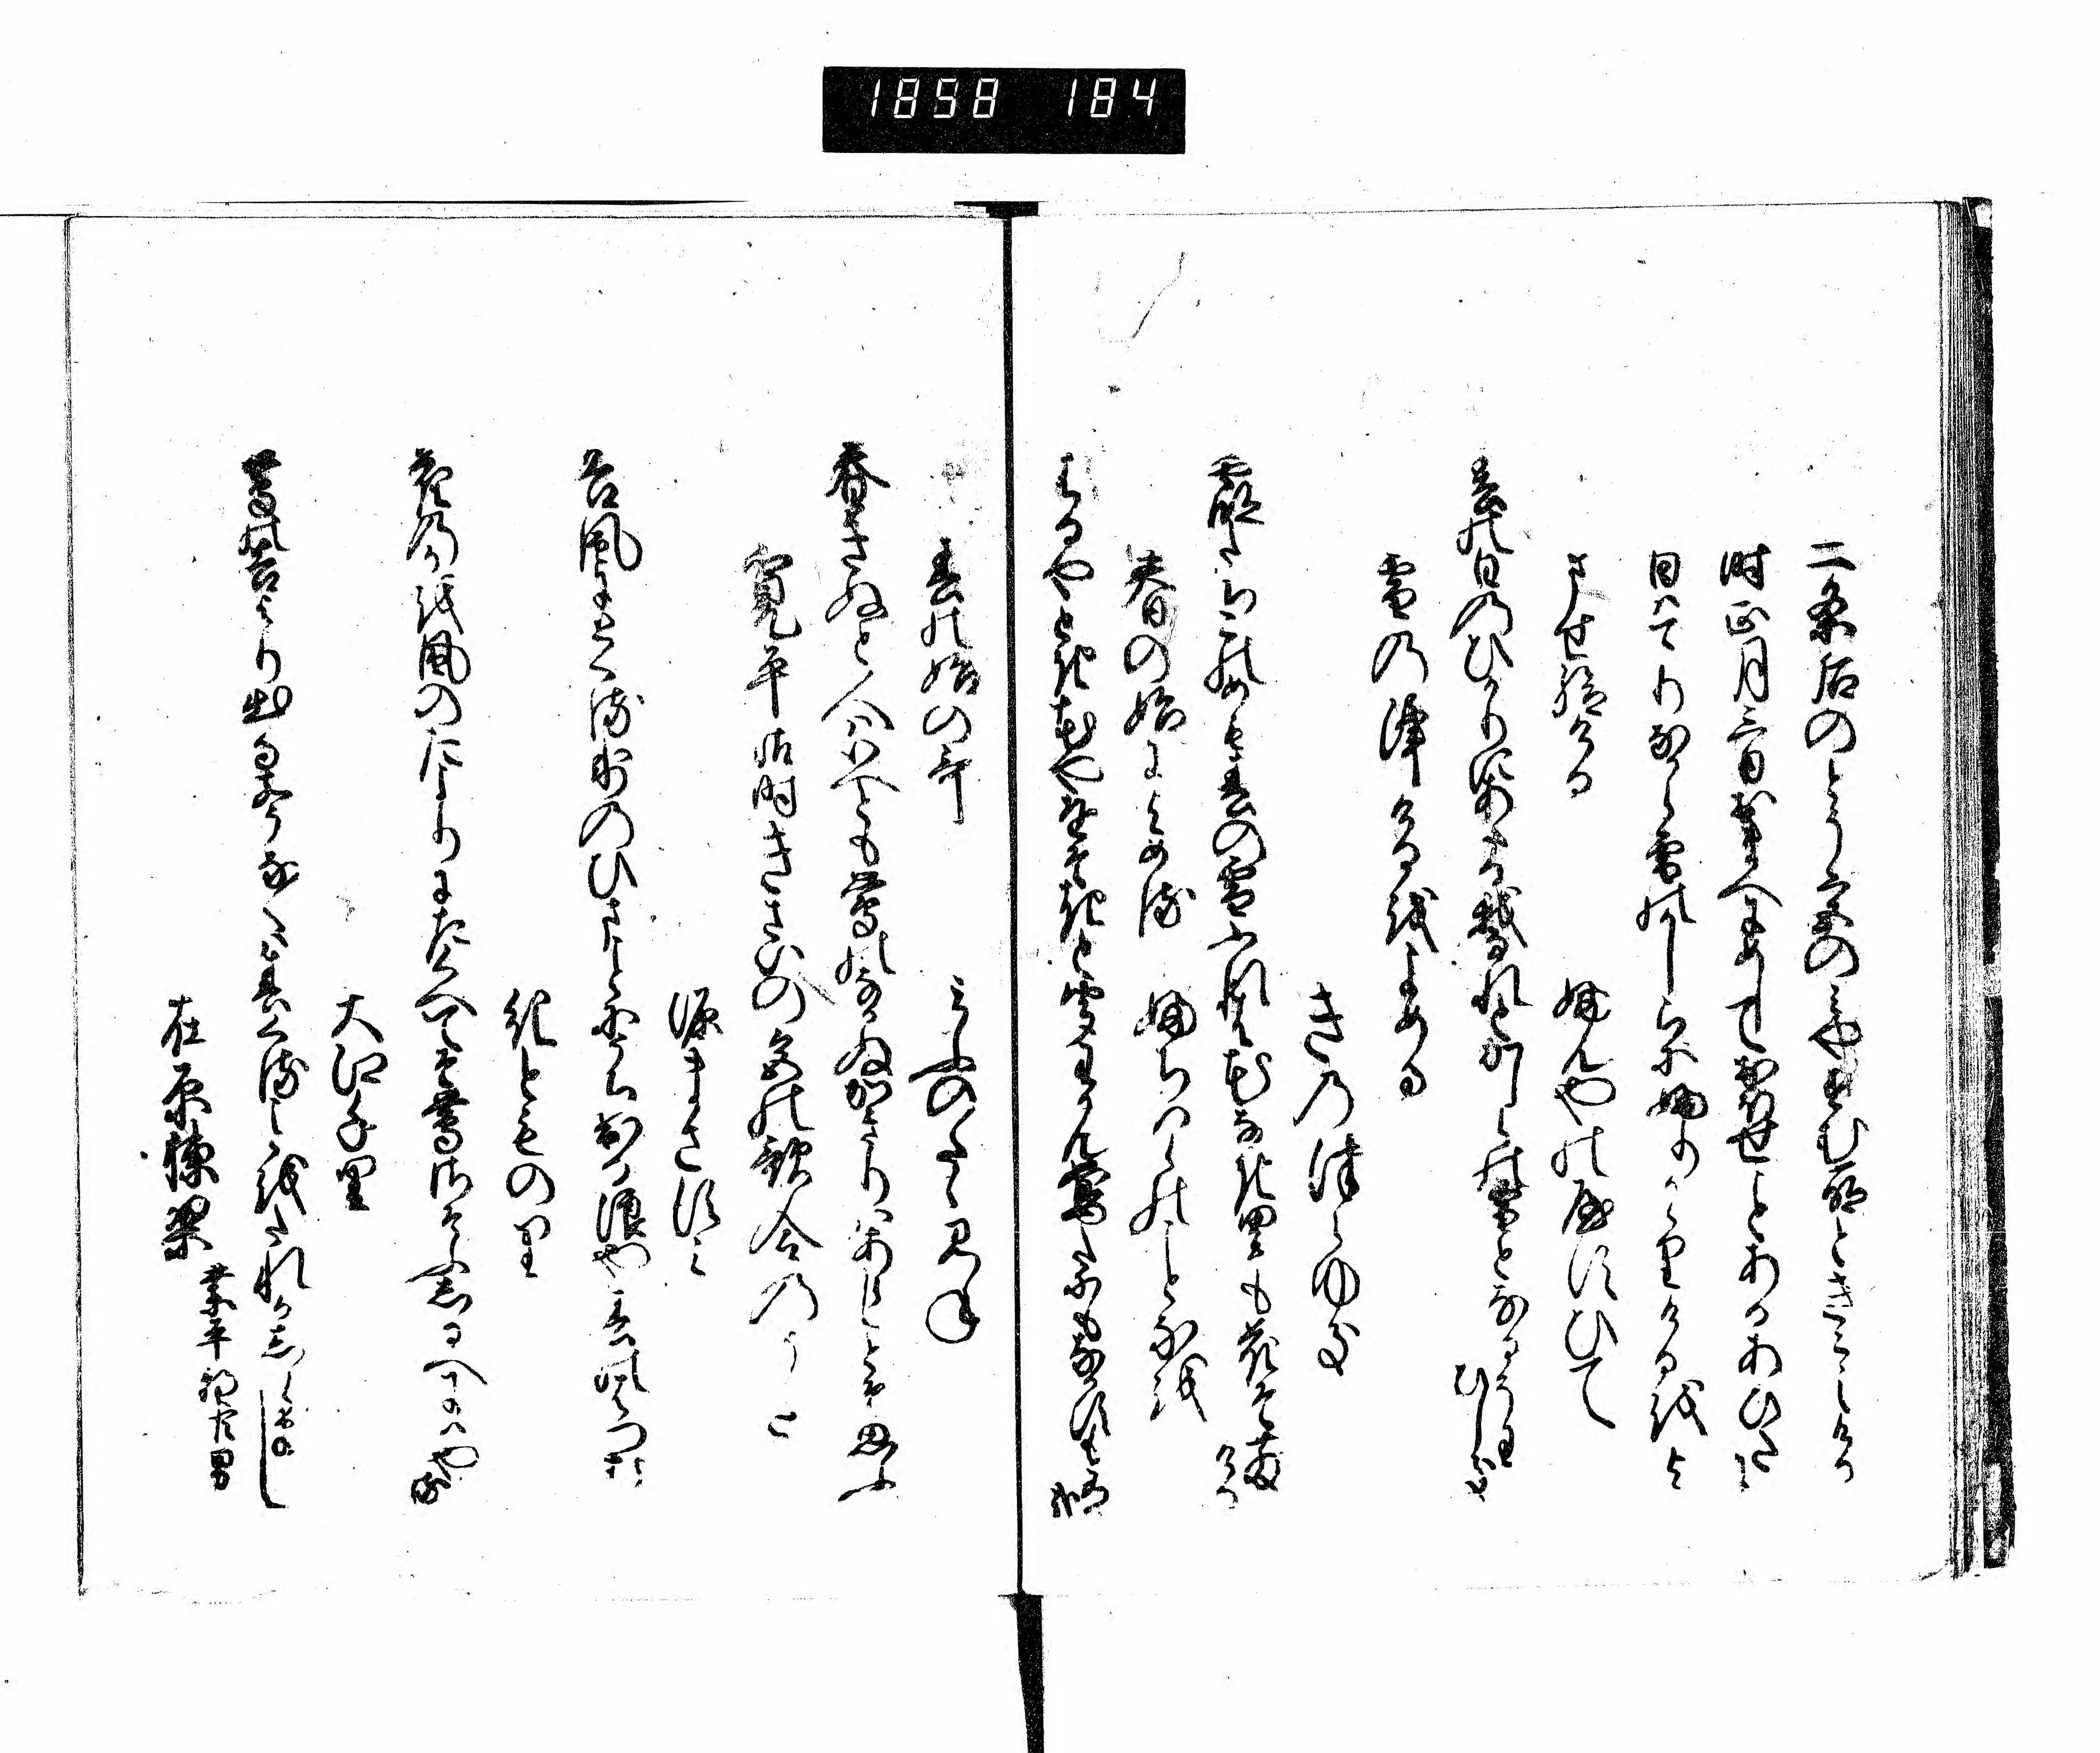 1858 184
二条后のとう宮のみやすむ所ときこえける
時正月三日おまへにめしておほせことあるあひたに
日はてりなから雪のかしらにふりかゝりけるをよ
ませ給ける　ふんやのやすひて
春の日のひかりにあたる我なれとかしらの雪となるそわひしき
雪の降けるをよめる
きのつらゆき
霞たちこのめも春の雪ふれは花なき里も花そちりける
春の始によめる　ふちはらのことなを
はるやとき花やをそきと聞わかん鶯たにもなかすも有哉
春の始の哥　みふのたゝみね
春きぬと人はいへとも鶯のなかぬかきりはあらしとそ思ふ
寛平御時きさいの宮の歌合のうた
源まさすみ
谷風にとくる氷のひまことにうち出る浪や春の初はな
紀とものり
花のかを風のたよりにたくへてそ鶯さそふしるへにはやる
大江千里
鶯の谷より出る声なくは春くることをたれかしらまし
在原棟梁　業平朝臣男